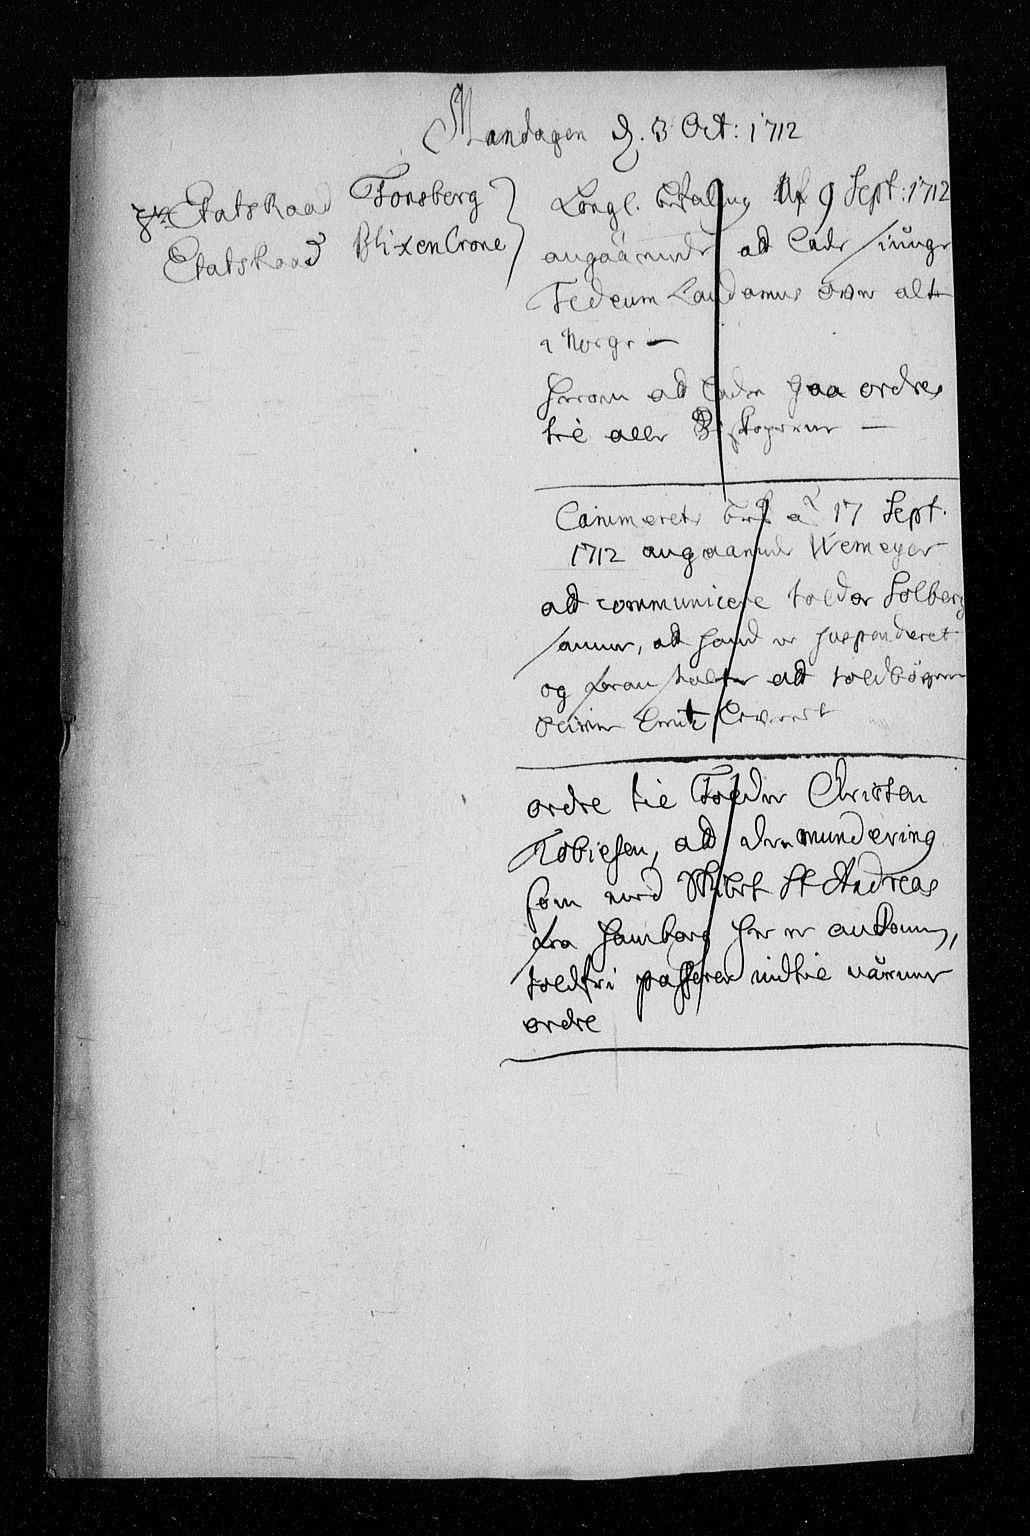 Mandagen d. 3 Oct: 1712
Hr Etatskaad Tonsberg
Etatskaad BlixenCrone
Kongl. befaling af 9 Sept: 1712
angaaende att lade siunge
Tedeum Laudamus over alt
i Norge —
herom att lade gaa ordre
til alle Biskoperne —
Cammerets bref a 17 Sept.
1712 angaaende Wemeyer
att communicere tolder Solberg
samme, att hand er suspenderet
og foranstalter att toldbøgerne
blifver
ordre til Tolder Christen
Tobiesen, att den mundering
som med Skibet St Andreas
fra Hamborg her er ankommen,
toldfri passerer indtil nærmer
ordre